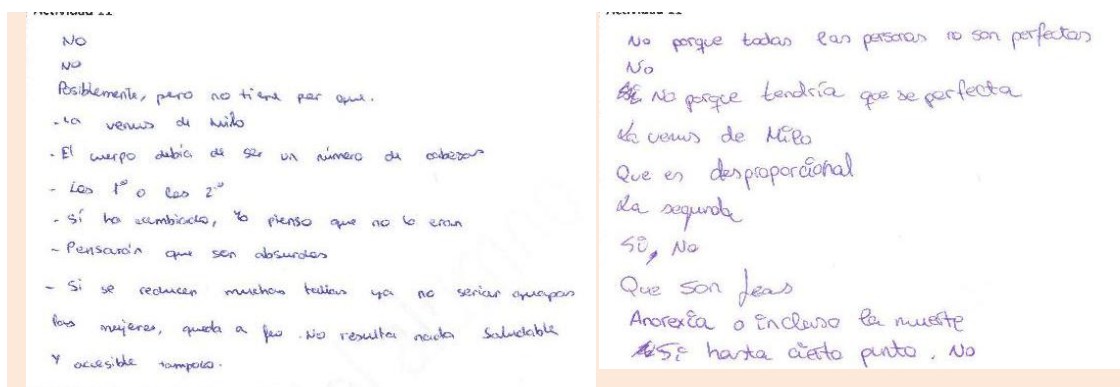 No
NO
Posiblemente, pero no tiene por que.
- La venus de milo
- El cuerpo debía de ser un número de cabezas
- Las 1ª o las 2ª
- Sí ha cambiado, yo pienso que no lo eran
- Pensarán que son absurdas
- Si se reducen muchas tallas ya no serian guapas
las mujeres, queda a feo. No resulta nada saludable
y accesible tampoco.
No porque todas las personas no son perfectas
No
No porque tendría que se perfecta
La venus de Milo
Que es desproporcional
La segunda
Sí, No
Que son feas
Anorexia o incluso la muerte
Sí hasta cierto punto. No